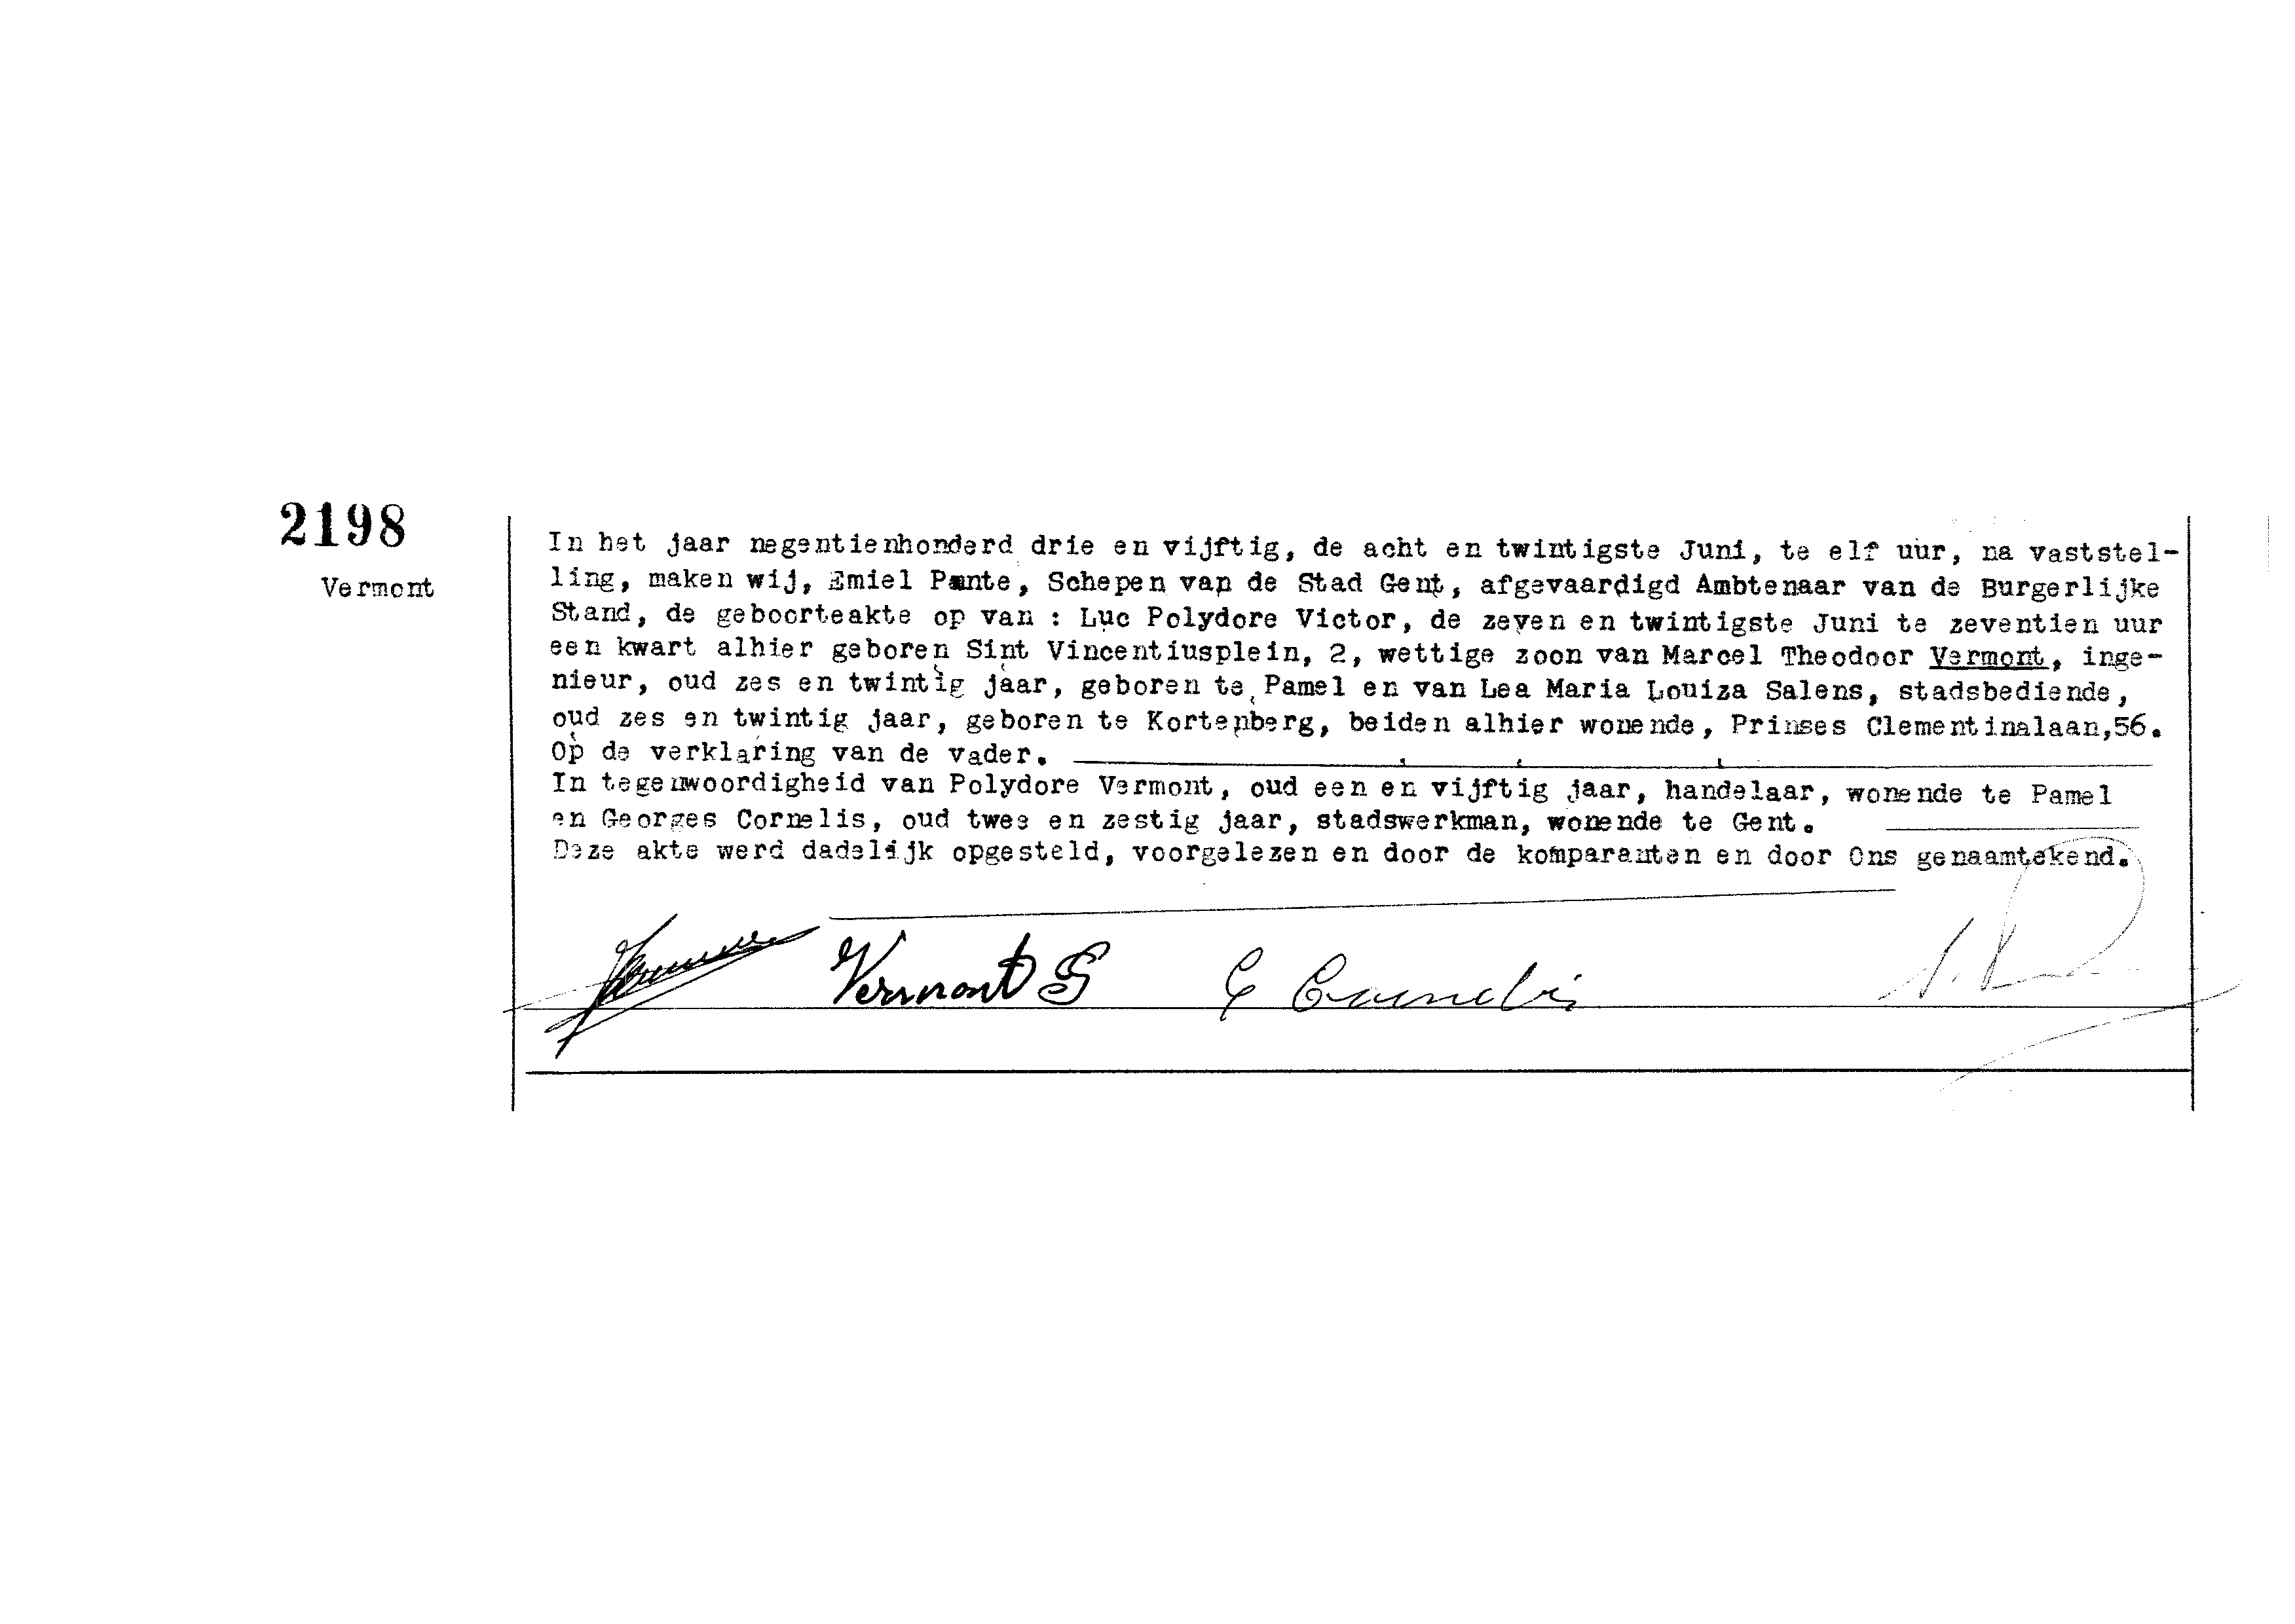 2198
Vermont
In het jaar negentienhonderd drie en vijftig, de acht en twintigste Juni, te elf uur, na vaststel-
ling, maken wij, Emiel Pante, Schepen van de Stad Gent, afgevaardigd Ambtenaar van de Burgerlijke
Stand, de geboorteakte op van : Luc Polydore Victor, de zeven en twintigste Juni te zeventien uur
een kwart alhier geboren Sint Vincentiusplein, 2, wettige zoon van Marcel Theodoor Vermont, inge-
nieur, oud zes en twintig jaar, geboren te Pamel en van Lea Maria Louiza Salens, stadsbediende,
oud zes en twintig jaar, geboren te Kortenberg, beiden alhier wonende, Prinses Clementinalaan,56.
Op de verklaring van de vader.
In tegenwoordigheid van Polydore Vermont, oud een en vijftig jaar, handelaar, wonende te Pamel
en Georges Cornelis, oud twee en zestig jaar, stadswerkman, wonende te Gent.
Deze akte werd dadelijk opgesteld, voorgelezen en door de komparanten en door Ons genaamtekend.
Vermont G Cornelis